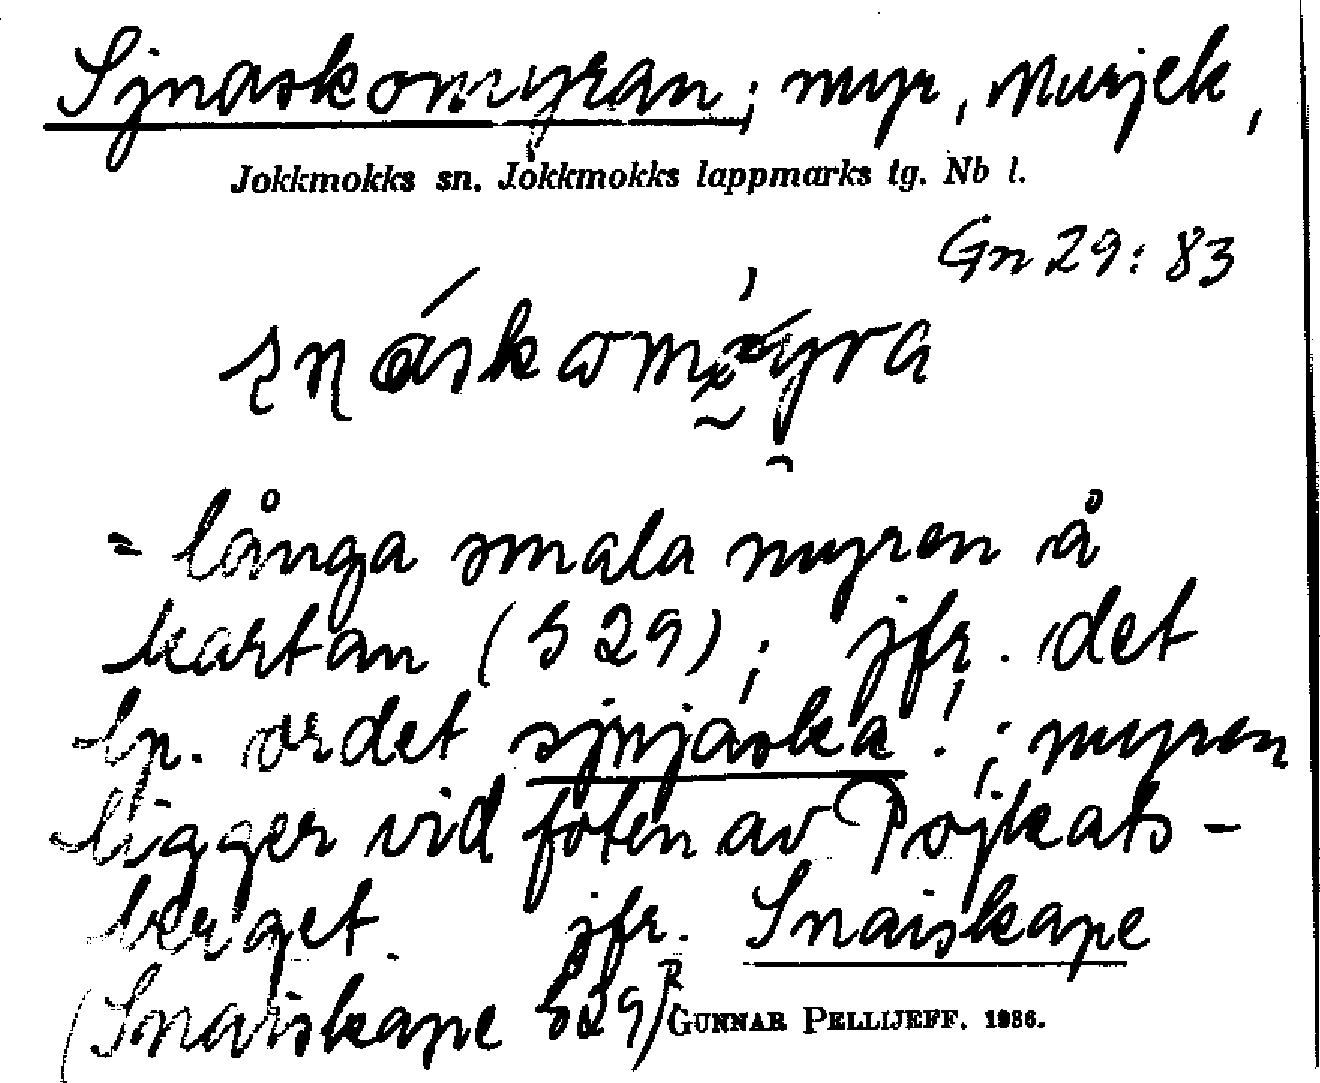 Sjnaskomyran; myr, Murjek,
Jokkmokks sn. Jokkmokks lappmarks tg. Nb l.
Gn 29: 83
= långa smala myren å
kartan (S 29); jfr. det
lp. ordet sjnjaska!; myren
ligger vid foten av Pojkats-
berget. jfr. Snaiskape
(Snaiskape S29)R
GUNNAR PELLIJEFF. 1936.